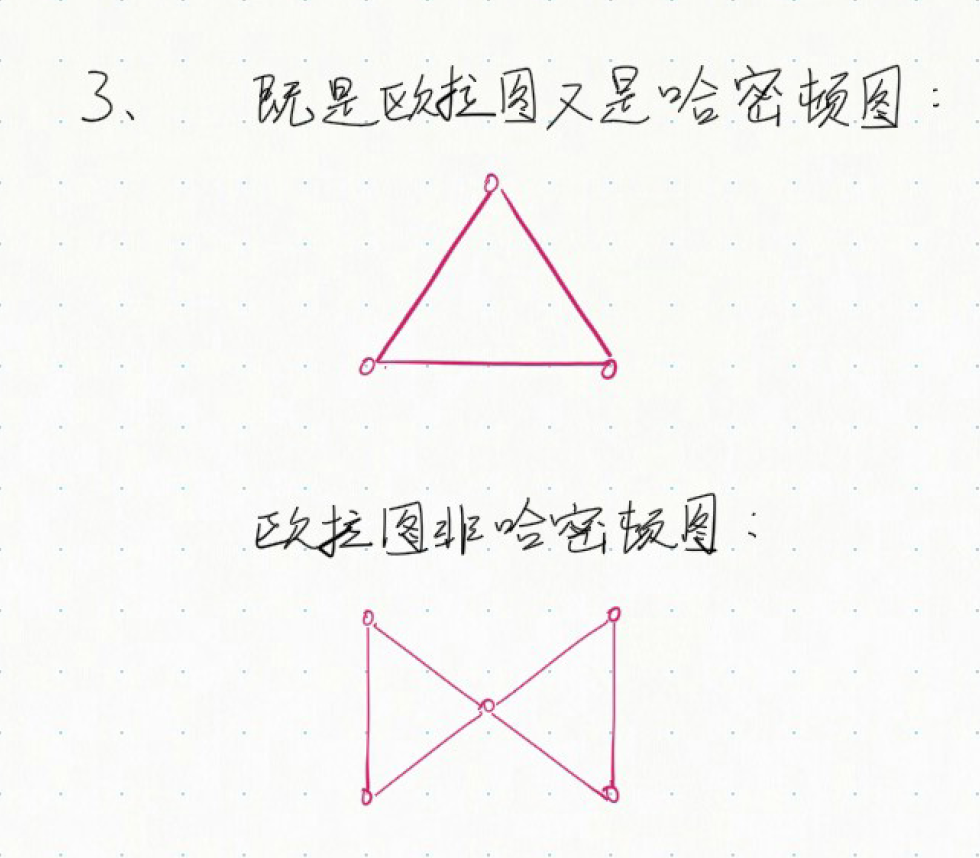 3、 既是欧拉图又是哈密顿图：
欧拉图非哈密顿图：